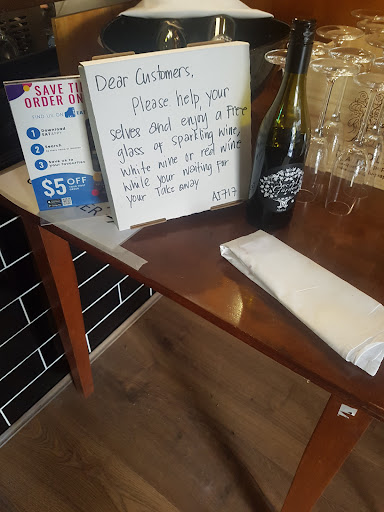 SAVE TI
ORDER ON
FIND US ON EA
1 Download
EAT
2 Search
3 Save us to
your favourites
$5 OFF
Dear Customers,
Please help, your
selves and enjoy a Free
glass of sparkling wine,
white wine or red wine
while your waiting for
your Take away
AJ717